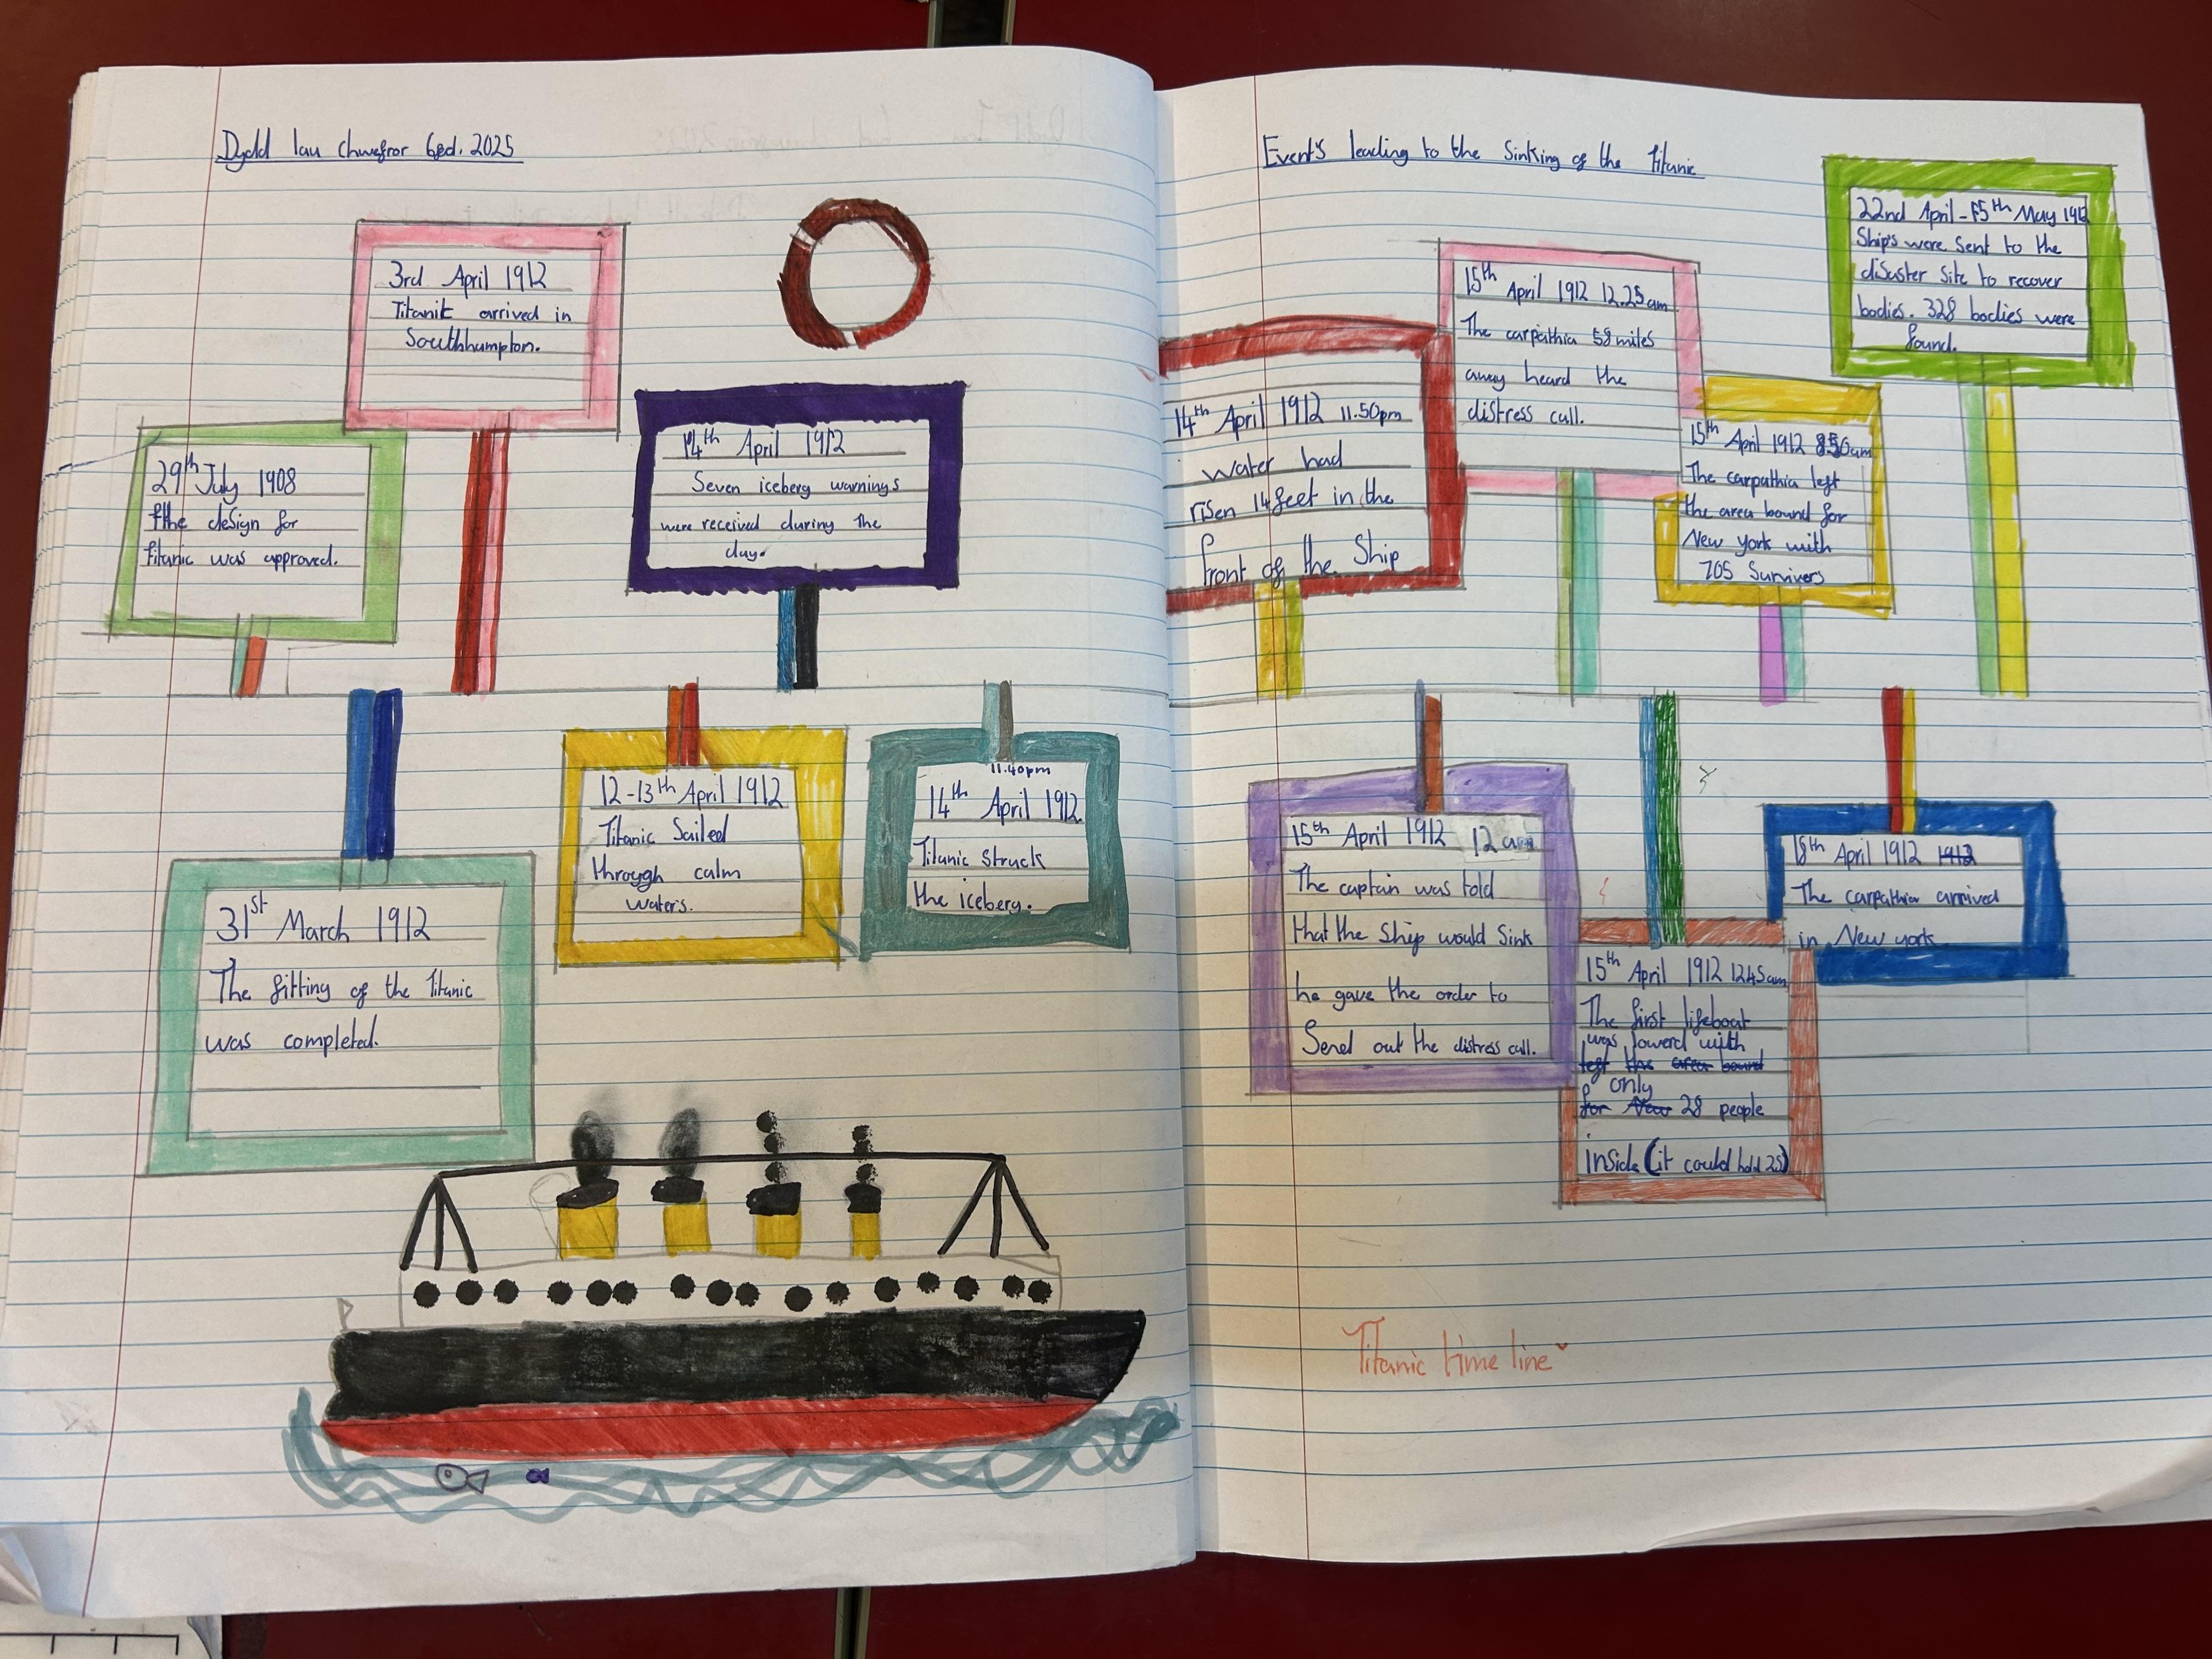 Dydd Iau Chwefror 6ed. 2025
3rd April 1912
Titanic arrived in
Southhumpton.
29th July 1908
the design for
titanic was approved.
14th April 1912
Seven iceberg warnings
were received during the
day.
31st March 1912
The fitting of the Titanic
was completed.
12-13th April 1912
Titanic Sailed
through calm
waters.
11.40pm
14th April 1912.
Titanic struck
the iceberg.
Event's leading to the Sinking of the Titanic
14th April 1912 11.50pm
water had
risen 14 feet in the
front of the Ship
15th April 1912 12.25am
The carpathia 58 miles
away heard the
distress call.
15th April 1912 850am
The carpathia left
the area bound for
New york with
705 Survivers
22nd April - 15th May 1912
Ship's were sent to the
disaster site to recover
bodies. 328 bodies were
found.
15th April 1912 12 am
The captain was told
that the Ship would Sink
he gave the order to
Send out the distress call.
15th April 1912 1245am
The first lifeboat
was lowerd with
left the area bound
only
for New 28 people
inside (it could hold 25)
18th April 1912 1912
The carpathia arrived
in New york
Titanic time line